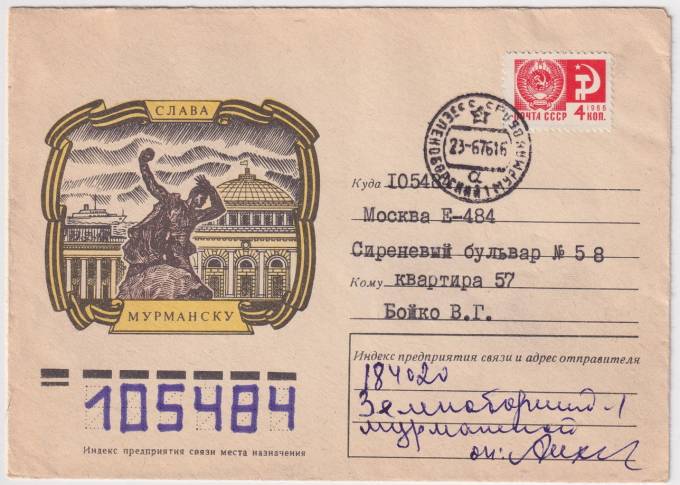 СЛАВА
МУРМАНСКУ
ПОЧТА СССР
1966
4 КОП.
23-6 76 16
Куда I0548
Москва Е-484
Сиреневый бульвар № 58
Кому квартира 57
Бойко В.Г.
Индекс предприятия связи и адрес отправителя
184020
мурманской
105484
Индекс предприятия связи места назначения